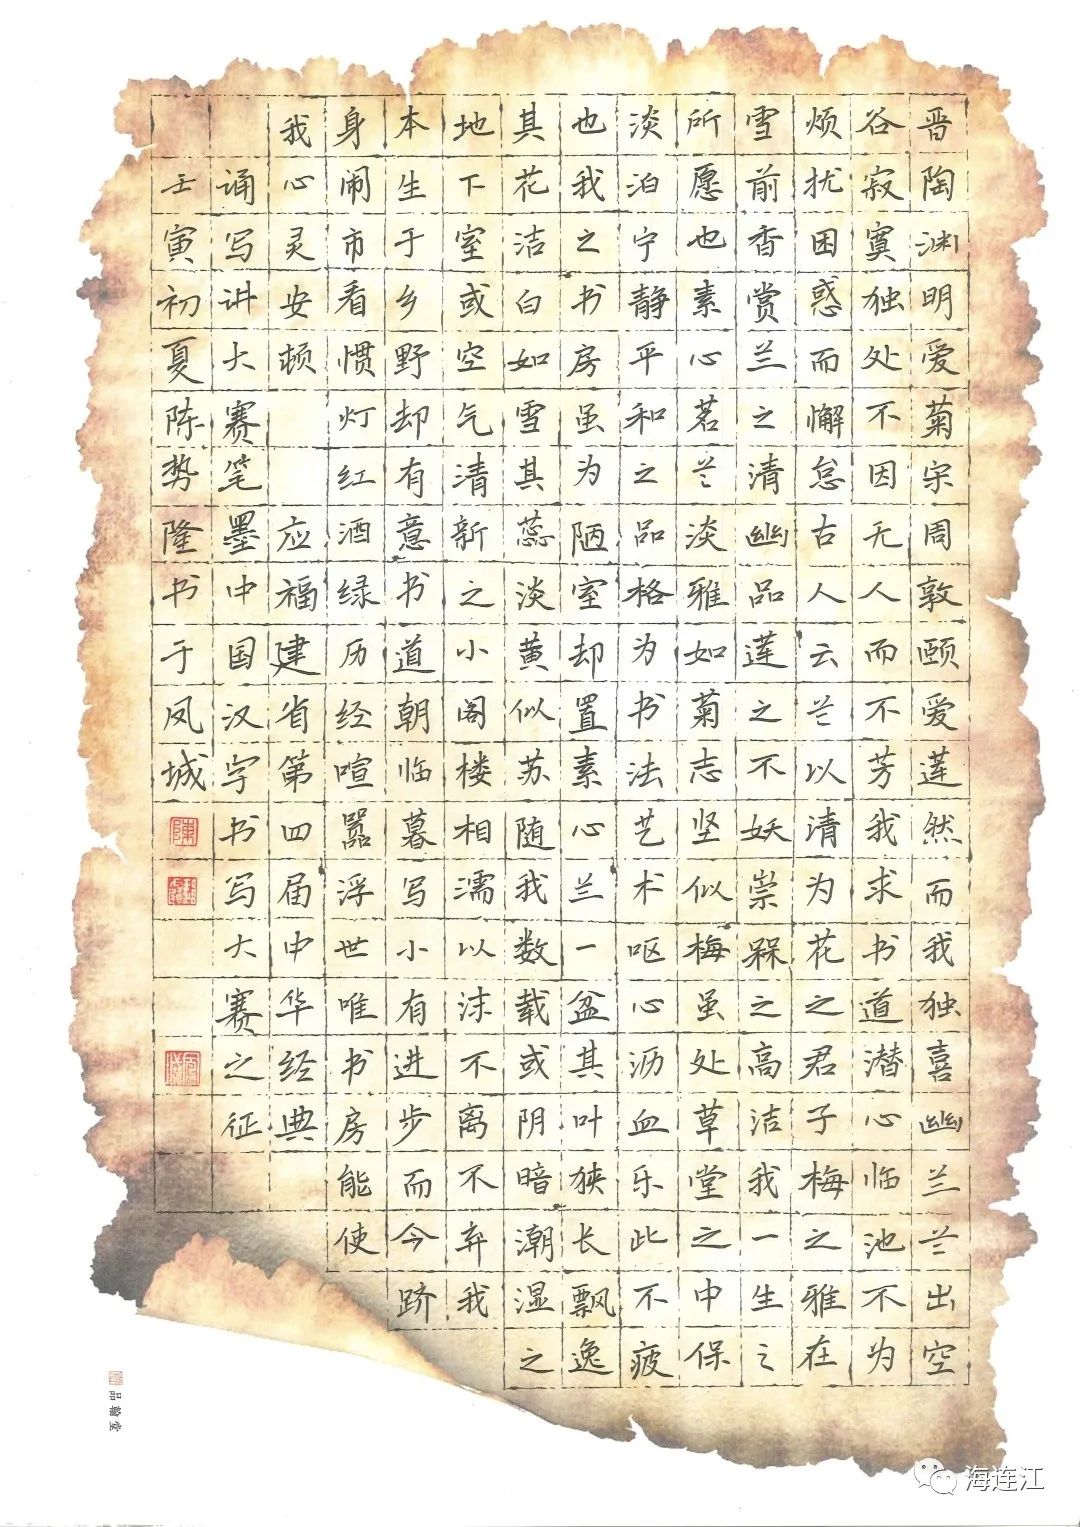 晋陶渊明爱菊宋周敦颐爱莲然而我独喜幽兰兰出空
谷寂寞独处不因无人而不芳我求书道潜心临池不为
烦扰困惑而懈怠古人云兰以清为花之君子梅之雅在
雪前香赏兰之清幽品莲之不妖崇槑之高洁我一生之
所愿也素心茗兰淡雅如菊志坚似梅虽处草堂之中保
淡泊宁静平和之品格为书法艺术呕心沥血乐此不疲
也我之书房虽为陋室却置素心兰一盆其叶狭长飘逸
其花洁白如雪其蕊淡黄似苏随我数载或阴暗潮湿之
地下室或空气清新之小阁楼相濡以沫不离不弃我
本生于乡野却有意书道朝临暮写小有进步而今跻
身闹市看惯灯红酒绿历经喧嚣浮世唯书房能使
我心灵安顿 应福建省第四届中华经典
诵写讲大赛笔墨中国汉字书写大赛之征
壬寅初夏陈势隆书于凤城
品翰堂
海连江